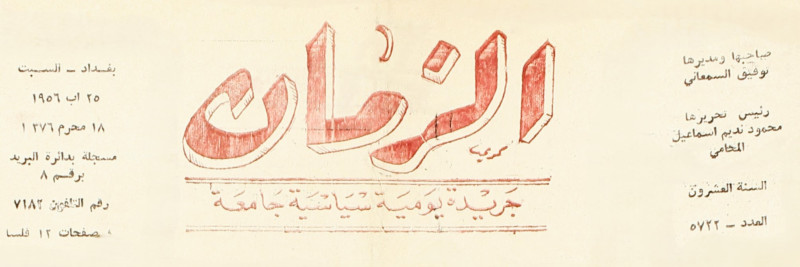 صاحبها ومديرها
توفيق السمعاني
رئيس تحريرها
محمود نديم اسماعيل
المحامي
السنة العشرون
العدد - ٥٧٢٢
الزمان
كريم
جريدة يومية سياسية جامعة
بغداد - السبت
٢٥ اب ١٩٥٦
١٨ محرم ١٣٧٦
مسجلة بدائرة البريد
برقم ٨
رقم التلفون ٧١٨٢
صفحات ١٢ فلسا